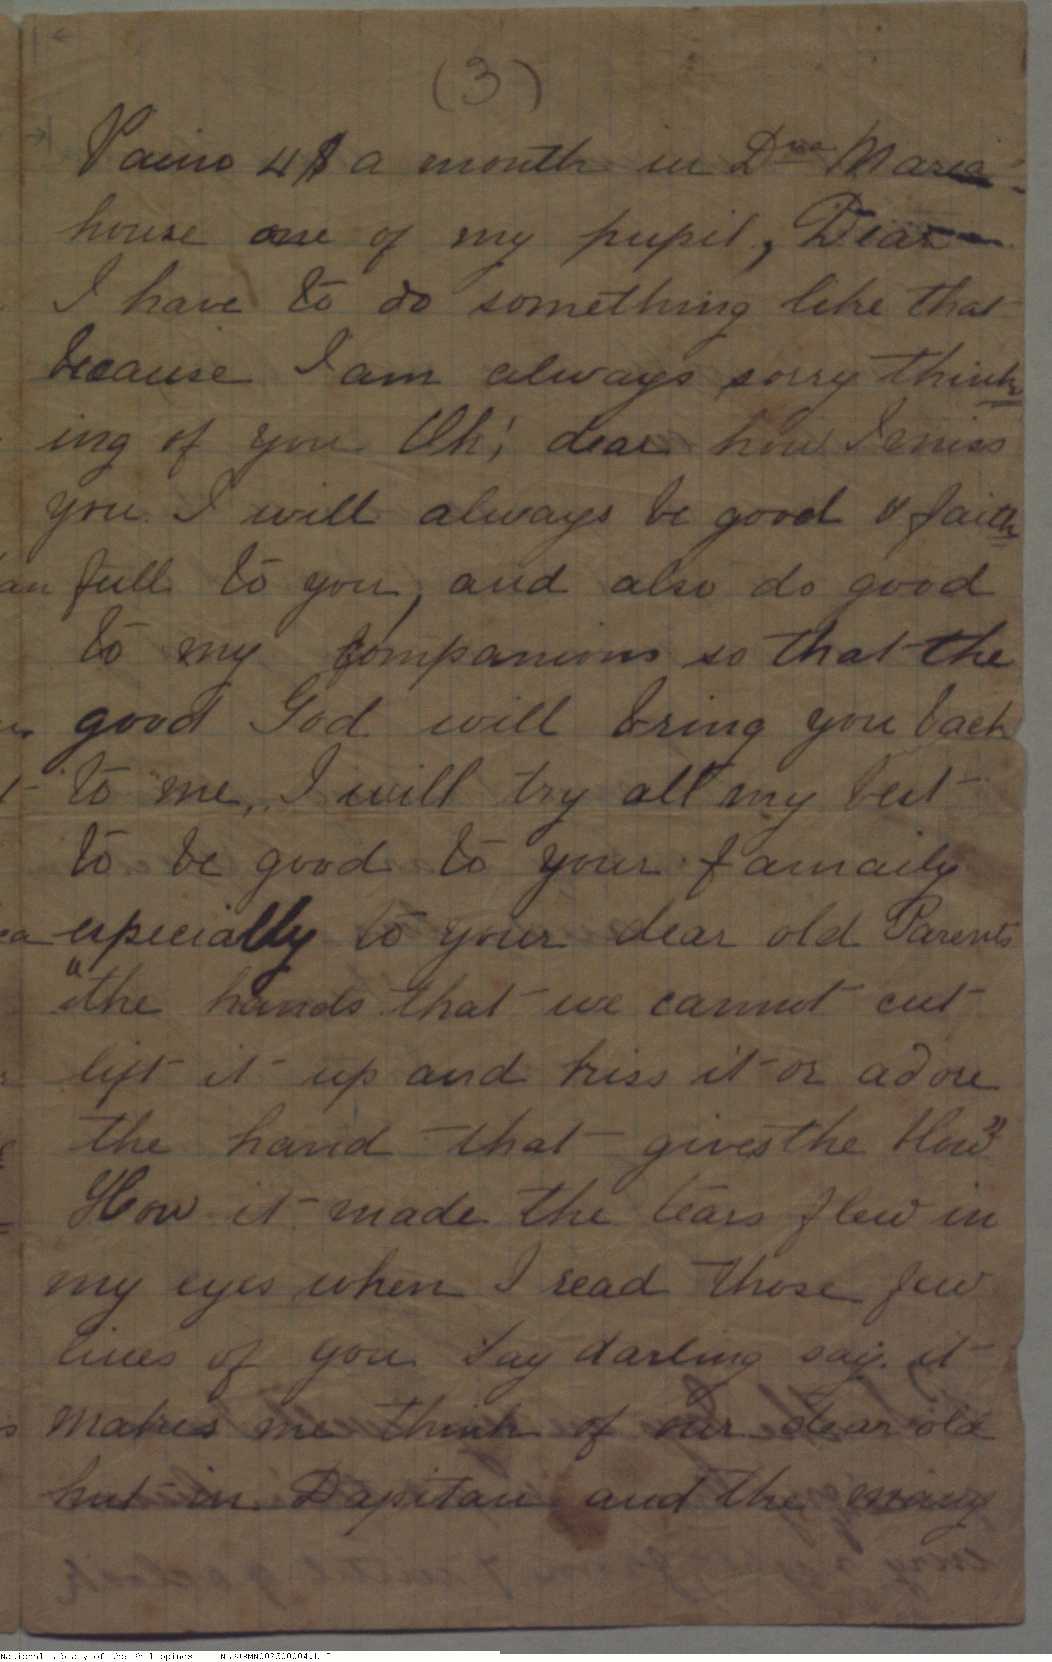 (3)
Paino 4$ a month in Dña Maria
house one of my pupil, Dear
I have to do something like that
because I am always sorry think
ing of you Oh! dear how I miss
you. I will always be good & faith
full to you, and also do good
to my companions so that the
good God will bring you back
to me, I will try all my best
to be good to your famaily
especially to your dear old Parents
"the hands that we cannot cut
lift it up and kiss it or adore
the hand that gives the blow"
How it made the tears flew in
my eyes when I read those few
lines of you. Say darling say it
makes me think of our dear old
hut in Dapitan and the many
National Library of the Philippines